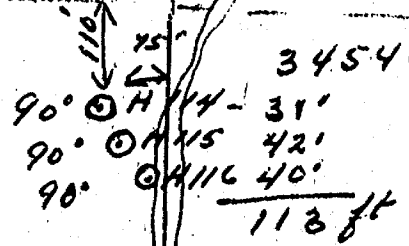 110'
75'
3454
90° H 114 - 31'
90° H 115 42'
90° H 116 40'
113 ft